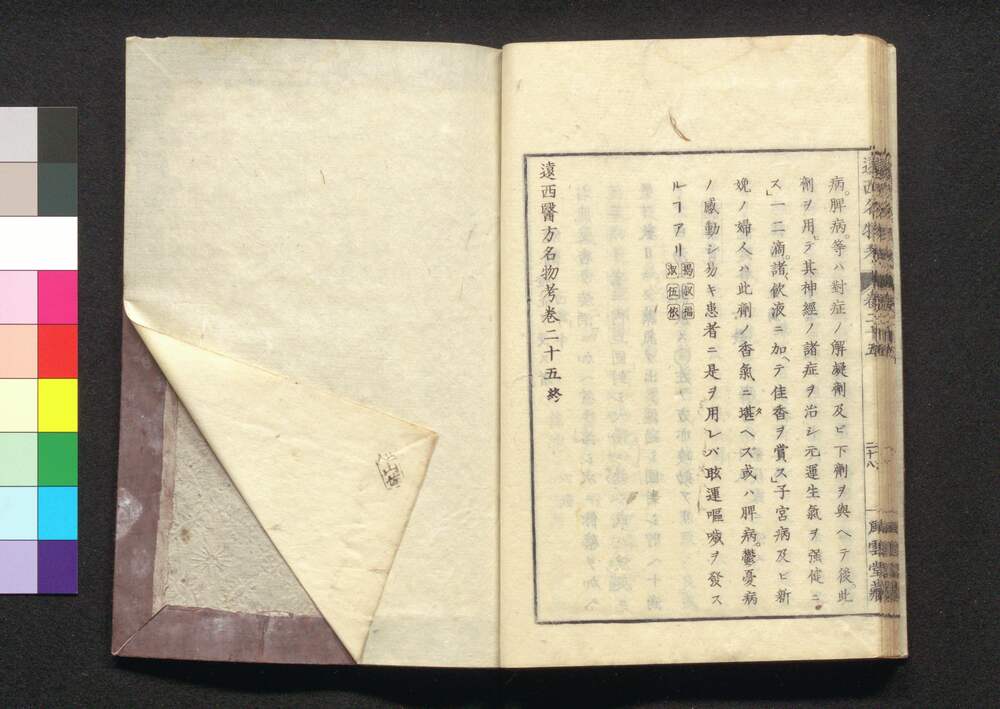 病。脾病。等ハ對症ノ解凝劑及ヒ下劑ヲ與ヘテ後。此
劑ヲ用ヒテ其神經ノ諸症ヲ治シ元運生氣ヲ强健ニ
ス」一二滴。諸飮液ニ加ヘテ佳香ヲ賞ス」子宮病及ヒ新
娩ノ婦人ハ此劑ノ香氣ニ堪ヘス或ハ脾病。鬱憂病
ノ感動シ易キ患者ニ是ヲ用レバ眩運嘔噦ヲ發ス
ルヿアリ
遠西醫方名物考卷二十五終
遠西名物考
卷二十五
二十八
風雲堂藏